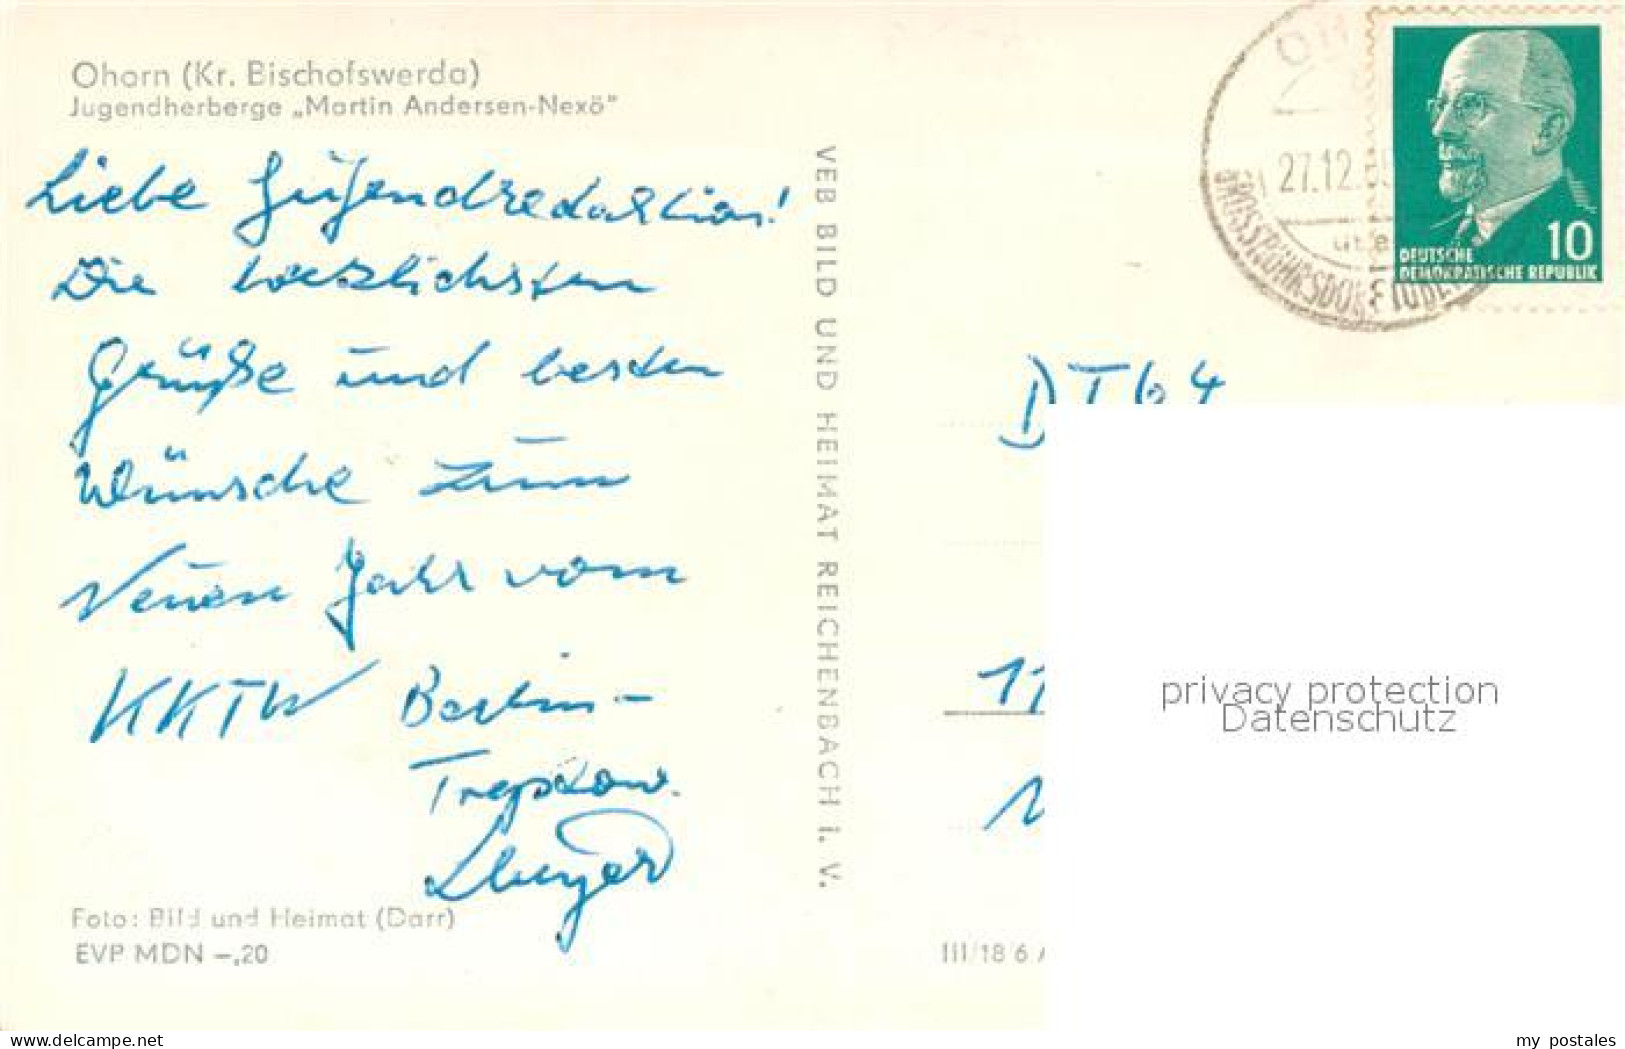 Ohorn (Kr. Bischofswerda)
Jugendherberge „Martin Andersen-Nexö"
Liebe Jugendredaktion!
Die herzlichsten
Grüße und besten
Wünsche zum
Neuen Jahr vom
KKTW Berlin-
Treptow.
Foto: Bild und Heimat (Darr)
EVP MDN –,20
VEB BILD UND HEIMAT REICHENBACH I. V.
27.12.65
GROSSRÖHRSDORF
10
DEUTSCHE
DEMOKRATISCHE REPUBLIK
DT 64
11
III/18 6 A
privacy protection
Datenschutz
www.ansichtskartenversand.com
my postales